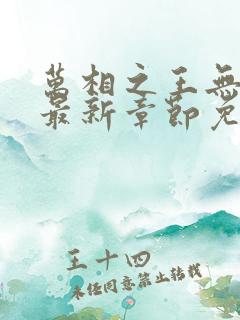 萬相之王無
最新章節免
王十四
未经同意禁止转载